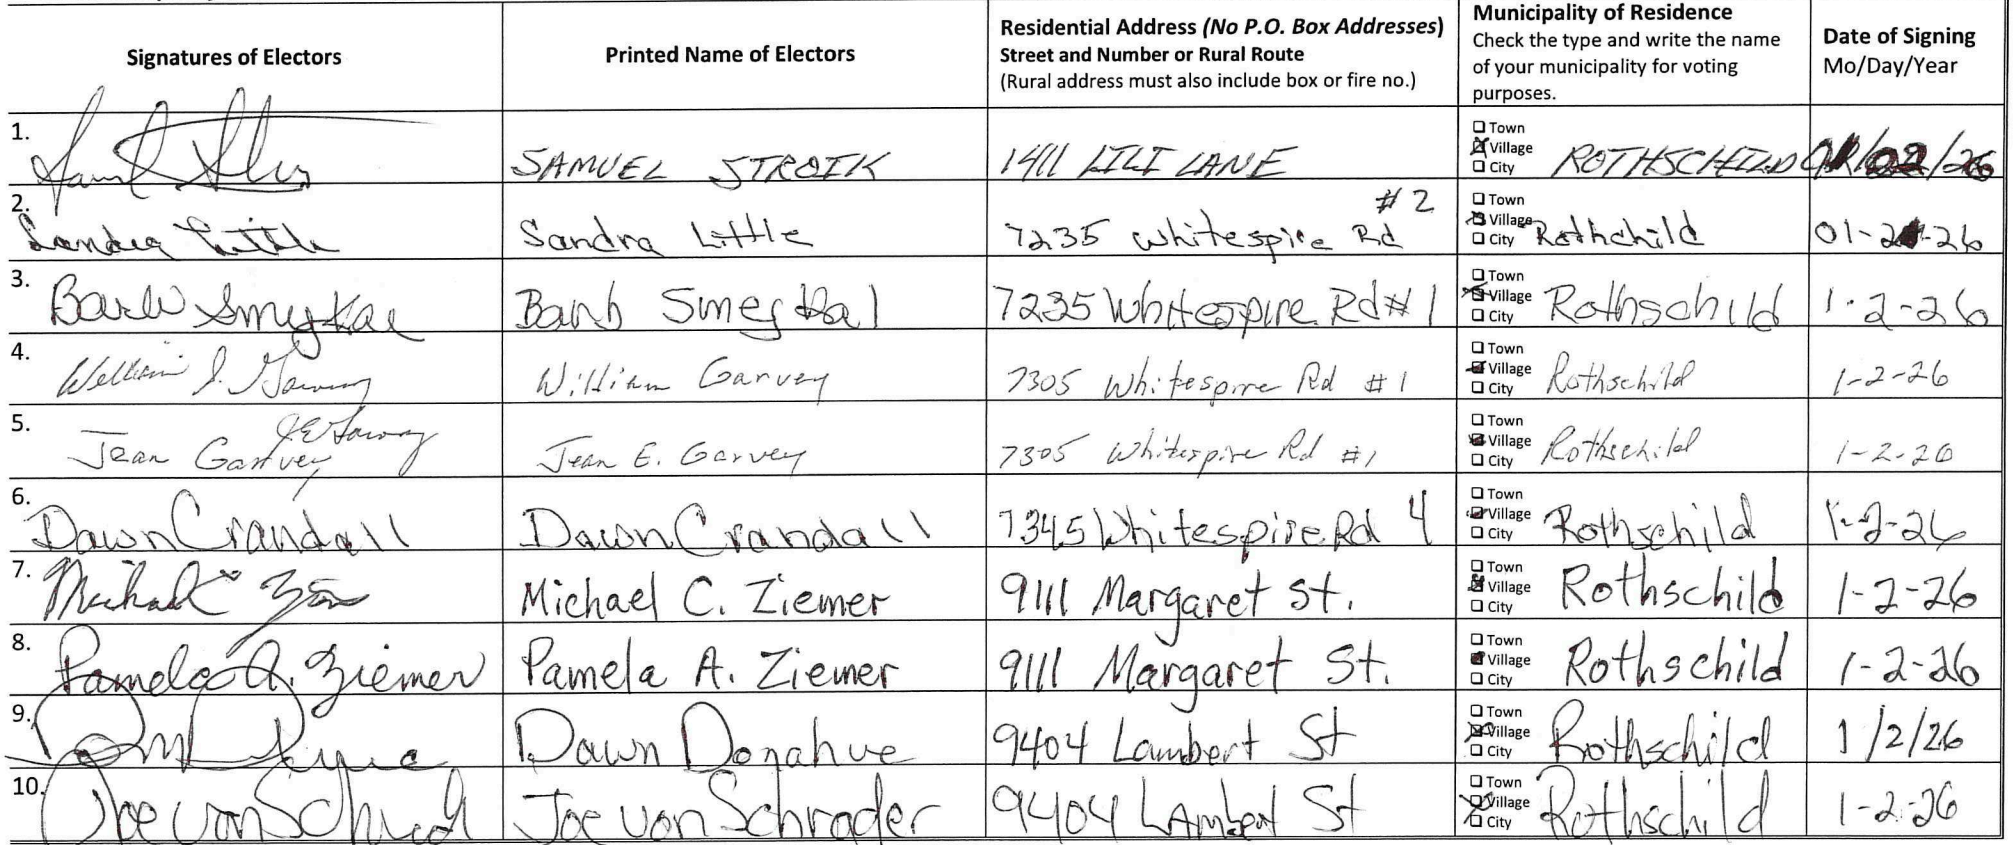 Signatures of Electors
Printed Name of Electors
Residential Address (No P.O. Box Addresses)
Street and Number or Rural Route
(Rural address must also include box or fire no.)
Municipality of Residence
Check the type and write the name
of your municipality for voting
purposes.
Date of Signing
Mo/Day/Year
1. SAMUEL STROIK 1411 LILI LANE Town Village City ROTHSCHILD 01/02/26
2. Sandra Little Sandra Little 7235 Whitespire Rd #2 Town Village City Rothchild 01-2-26
3. Barb Smeykal Barb Smeykal 7235 Whitespire Rd #1 Town Village City Rothschild 1-2-26
4. William J. Garvey William Garvey 7305 Whitespire Rd #1 Town Village City Rothschild 1-2-26
5. Jean Garvey JE Garvey Jean E. Garvey 7305 Whitespire Rd #1 Town Village City Rothschild 1-2-26
6. Dawn Crandall Dawn Crandall 7345 Whitespire Rd 4 Town Village City Rothschild 1-2-26
7. Michael Michael C. Ziemer 9111 Margaret St. Town Village City Rothschild 1-2-26
8. Pamela A. Ziemer Pamela A. Ziemer 9111 Margaret St. Town Village City Rothschild 1-2-26
9. Dawn Donahue 9404 Lambert St Town Village City Rothschild 1/2/26
10. Joe von Schrader Joe von Schrader 9404 LAmbert St Town Village City Rothschild 1-2-26